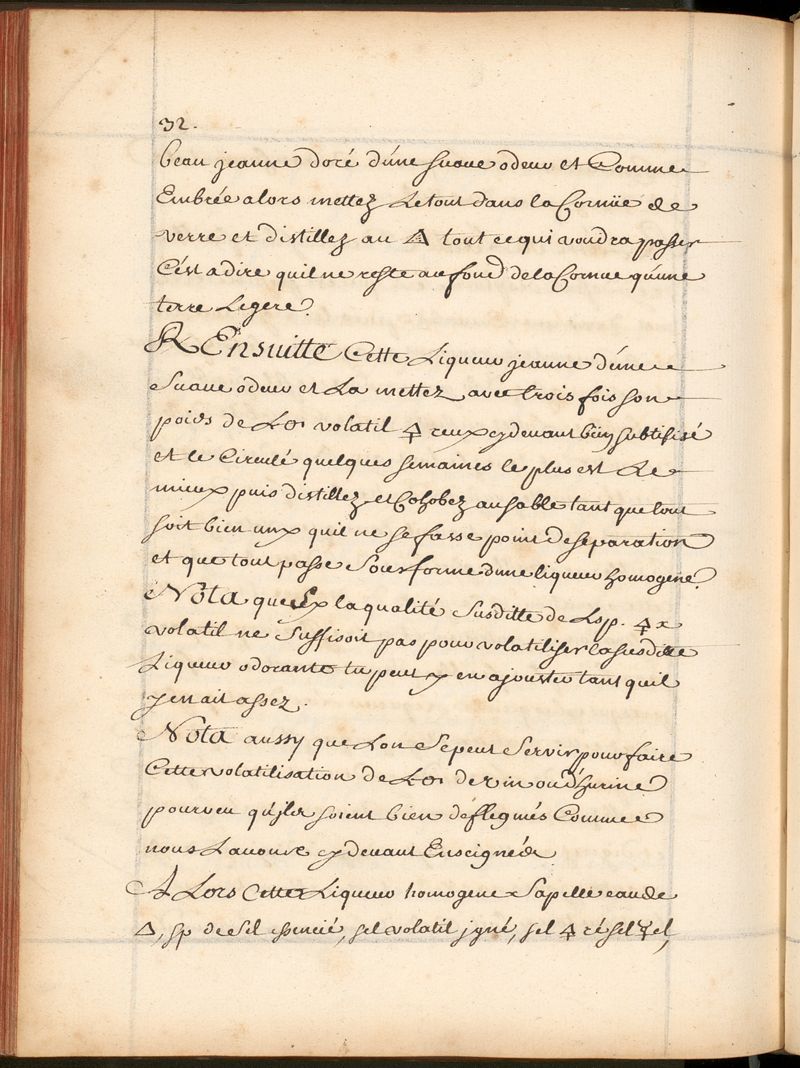 32.
beau jeaune doré d'une suaue odeur et Comme
Embrée alors mettez Le tout dans la Cornüe de
verre et distillez au 🜂 tout ce qui voudra passer
C'est a dire qu'il ne reste au fond de la Cornue qu'une
terre Legere.
℞ Ensuitte Cette Liqueur jeaune d'une
Suaue odeur et La mettez avec trois fois son
poids de volatil 🜍 reux cy deuant bien subtilisé
et le Circulé quelques semaines le plus est Le
mieux puis distillez et Cohobez au sable tant que tout
soit bien uny qu'il ne se fasse point de separation
et que tout passe Sous forme d'une liqueur homogene.
Nota que la qualité Susditte de L'sp. 🜍 x
volatil ne suffisoit pas pour volatiliser la susditte
Liqueur odorante tu peux y en ajouster tant qu'il
y en ait assez.
Nota aussy que Lon Se peut Servir pour faire
Cette volatilisation de de vin ou d'hurine
pourveu qu'jls soient bien deflegmés Comme
nous Lauons cy deuant Enseigné
ALors Cette Liqueur homogene Sapelle eau de
🜂, sp de Sel essencié, sel volatil jgné, sel 🜍 ré sel